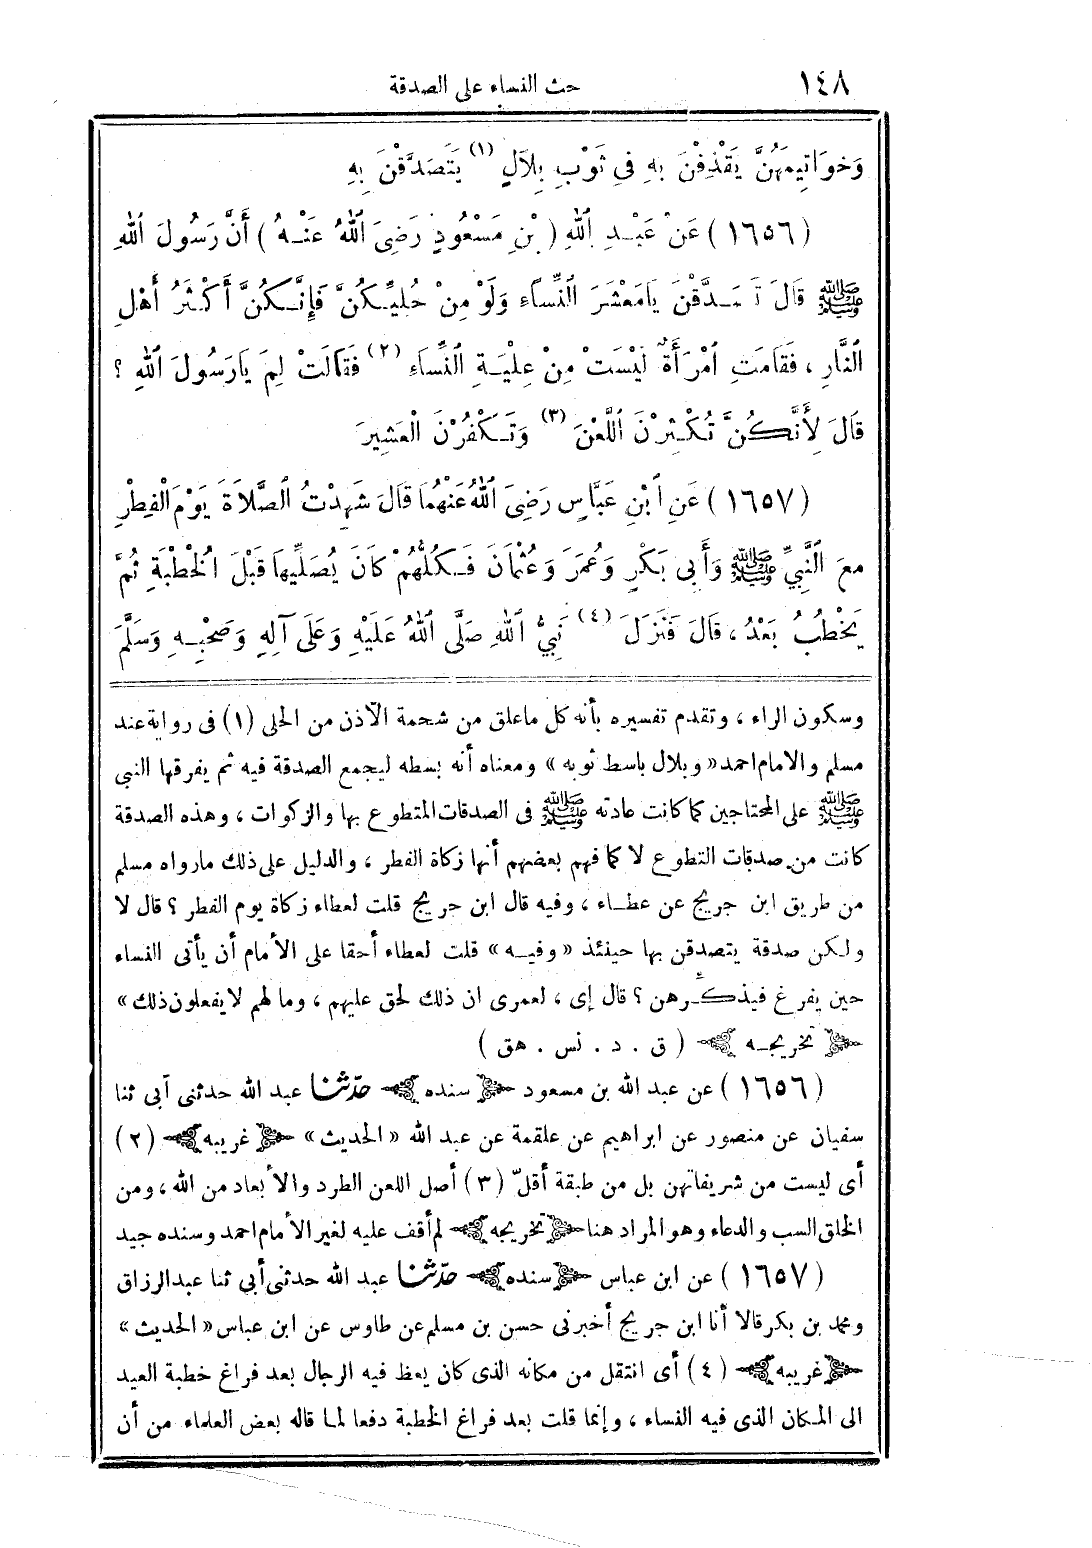 ١٤٨ حث النساء على الصدقة
وَخَوَاتِيمَهُنَّ يَقْذِفْنَ بِهِ فِى ثَوْبِ بِلَالٍ (١) يَتَصَدَّقْنَ بِهِ
(١٦٥٦) عَنْ عَبْدِ اللهِ (بْنِ مَسْعُودٍ رَضِىَ اللهُ عَنْهُ) أَنَّ رَسُولَ اللهِ
ﷺ قَالَ تَصَدَّقْنَ يَامَعْشَرَ النِّسَاءِ وَلَوْ مِنْ حُلِيِّكُنَّ فَإِنَّكُنَّ أَكْثَرُ أَهْلِ
النَّارِ ، فَقَامَتِ امْرَأَةٌ لَيْسَتْ مِنْ عِلْيَةِ النِّسَاءِ (٢) فَقَالَتْ لِمَ يَارَسُولَ اللهِ ؟
قَالَ لِأَنَّكُنَّ تُكْثِرْنَ اللَّعْنَ (٣) وَتَكْفُرْنَ الْعَشِيرَ
(١٦٥٧) عَنِ ابْنِ عَبَّاسٍ رَضِىَ اللهُ عَنْهُمَا قَالَ شَهِدْتُ الصَّلَاةَ يَوْمَ الْفِطْرِ
معَ النَّبِيِّ ﷺ وَأَبِى بَكْرٍ وَعُمَرَ وَعُثْمَانَ فَكُلُّهُمْ كَانَ يُصَلِّيهَا قَبْلَ الْخُطْبَةِ ثُمَّ
يَخْطُبُ بَعْدُ ، قَالَ فَنَزَلَ (٤) نَبِيُّ اللهِ صَلَّى اللهُ عَلَيْهِ وَعَلَى آلِهِ وَصَحْبِهِ وَسَلَّمَ
وسكون الراء ، وتقدم تفسيره بأنه كل ماعلق من شحمة الآذن من الحلى (١) فى رواية عند
مسلم والامام احمد « وبلال باسط ثوبه » ومعناه أنه بسطه ليجمع الصدقة فيه ثم يفرقها النبى
ﷺ على المحتاجين كما كانت عادته ﷺ فى الصدقات المتطوع بها والزكوات ، وهذه الصدقة
كانت من صدقات التطوع لا كما فهم بعضهم أنها زكاة الفطر ، والدليل على ذلك مارواه مسلم
من طريق ابن جريج عن عطاء ، وفيه قال ابن جريج قلت لعطاء زكاة يوم الفطر ؟ قال لا
ولكن صدقة يتصدقن بها حينئذ « وفيه » قلت لعطاء أحقا على الأمام أن يأتى النساء
حين يفرغ فيذكرهن ؟ قال إى ، لعمرى ان ذلك لحق عليهم ، وما لهم لايفعلون ذلك »
﴿ تخريجه ﴾ ( ق . د . نس . هق )
(١٦٥٦) عن عبد الله بن مسعود ﴿ سنده ﴾ حدّثنا عبد الله حدثنى أبى ثنا
سفيان عن منصور عن ابراهيم عن علقمة عن عبد الله « الحديث » ﴿ غريبه ﴾ (٢)
أى ليست من شريفاتهن بل من طبقة أقلّ (٣) أصل اللعن الطرد والأبعاد من الله ، ومن
الخلق السب والدعاء وهو المراد هنا ﴿ تخريجه ﴾ لم أقف عليه لغير الأمام احمد وسنده جيد
(١٦٥٧) عن ابن عباس ﴿ سنده ﴾ حدّثنا عبد الله حدثنى أبى ثنا عبد الرزاق
ومحمد بن بكر قالا أنا ابن جريج أخبرنى حسن بن مسلم عن طاوس عن ابن عباس « الحديث »
﴿ غريبه ﴾ (٤) أى انتقل من مكانه الذى كان يعظ فيه الرجال بعد فراغ خطبة العيد
الى المكان الذى فيه النساء ، وإنما قلت بعد فراغ الخطبة دفعا لما قاله بعض العلماء من أن